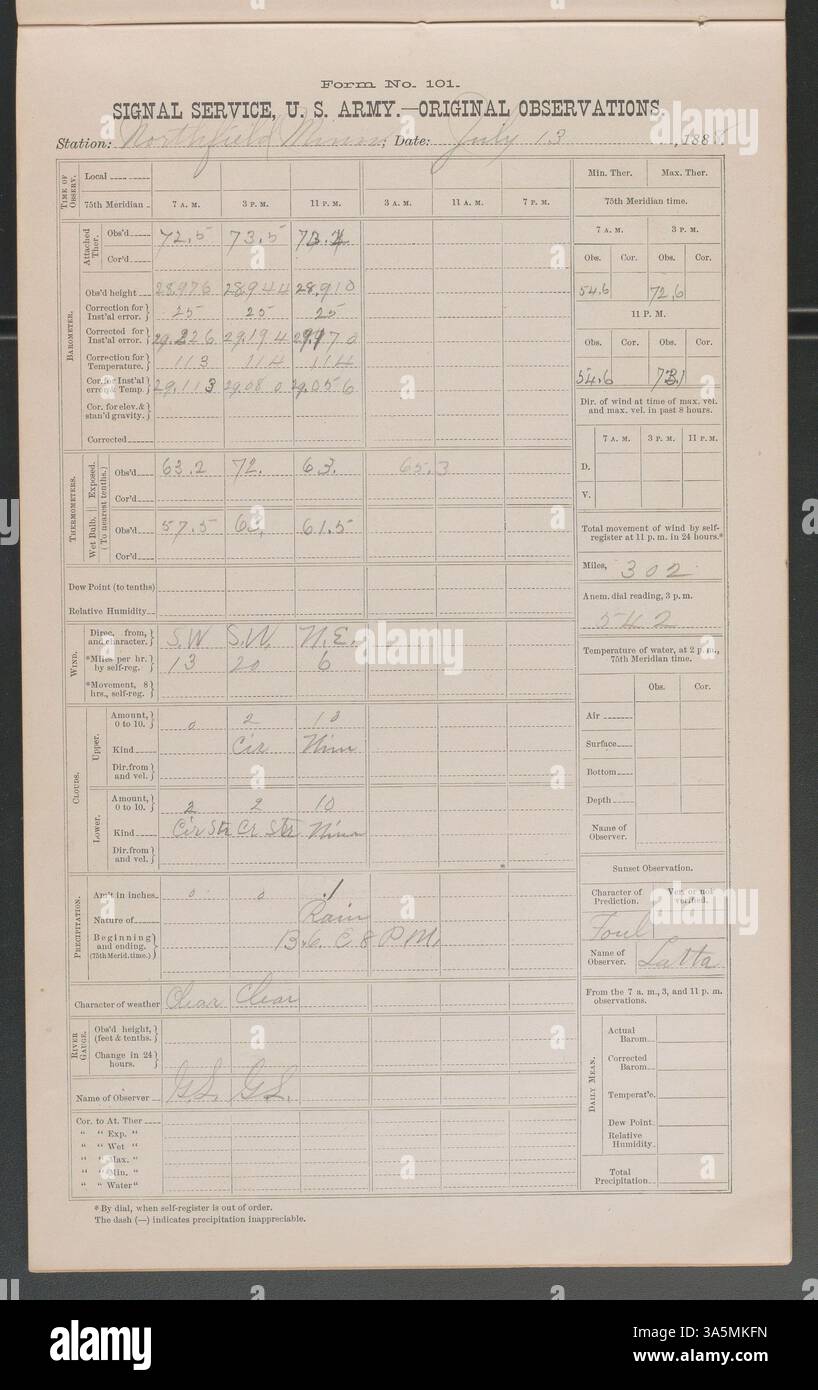 Form No. 101.
SIGNAL SERVICE, U. S. ARMY.—ORIGINAL OBSERVATIONS.
Station: Northfield Minn; Date: July 13, 188
TIME OF OBSERV.
Local
75th Meridian 7 A. M. 3 P. M. 11 P. M. 3 A. M. 11 A. M. 7 P. M.
BAROMETER.
Attached Ther.
Obs'd 72.5 73.5
Cor'd
Obs'd height 28.976 28.944 28.910
Correction for Inst'al error. 25 25 25
Corrected for Inst'al error. 29.226 29.194 29.170
Correction for Temperature. 113 114 114
Cor. for Inst'al error & Temp. 29.113 29.080 29.056
Cor. for elev. & stan'd gravity.
Corrected
THERMOMETERS.
Wet Bulb. | Exposed. (To nearest tenths.)
Obs'd 63.2 72. 63. 65.3
Cor'd
Obs'd 57.5 61.5
Cor'd
Dew Point (to tenths)
Relative Humidity
WIND.
Direc. from, and character. S.W S.W. N.E.
*Miles per hr. by self-reg. 13 20 6
*Movement, 8 hrs., self-reg.
CLOUDS.
Upper.
Amount, 0 to 10. 0 2 10
Kind Cir Nim
Dir. from and vel.
Lower.
Amount, 0 to 10. 2 2 10
Kind Cir Str Cr Str Nim
Dir. from and vel.
PRECIPITATION.
Am't in inches 0 0 .1
Nature of Rain
Beginning and ending. (75th Merid. time.) 8 P.M.
Character of weather Clear Clear
RIVER GAUGE.
Obs'd height, (feet & tenths.)
Change in 24 hours.
Name of Observer G.S. G.S.
Cor. to At. Ther
" " Exp. "
" " Wet "
" " Max. "
" " Min. "
" " Water "
* By dial, when self-register is out of order.
The dash (—) indicates precipitation inappreciable.
Min. Ther. Max. Ther.
75th Meridian time.
7 A. M. 3 P. M.
Obs. Cor. Obs. Cor.
54.6 72.6
11 P. M.
Obs. Cor. Obs. Cor.
54.6 73.1
Dir. of wind at time of max. vel. and max. vel. in past 8 hours.
7 A. M. 3 P. M. 11 P. M.
D.
V.
Total movement of wind by self-register at 11 p. m. in 24 hours.*
Miles, 302
Anem. dial reading, 3 p. m.
542
Temperature of water, at 2 p. m., 75th Meridian time.
Obs. Cor.
Air
Surface
Bottom
Depth
Name of Observer.
Sunset Observation.
Character of Prediction. Ver. or not verified.
Foul
Name of Observer. Latta
From the 7 a. m., 3, and 11 p. m. observations.
DAILY MEAN.
Actual Barom.
Corrected Barom.
Temperat'e.
Dew Point.
Relative Humidity.
Total Precipitation.
alamy
Image ID: 3A5MKFN
www.alamy.com